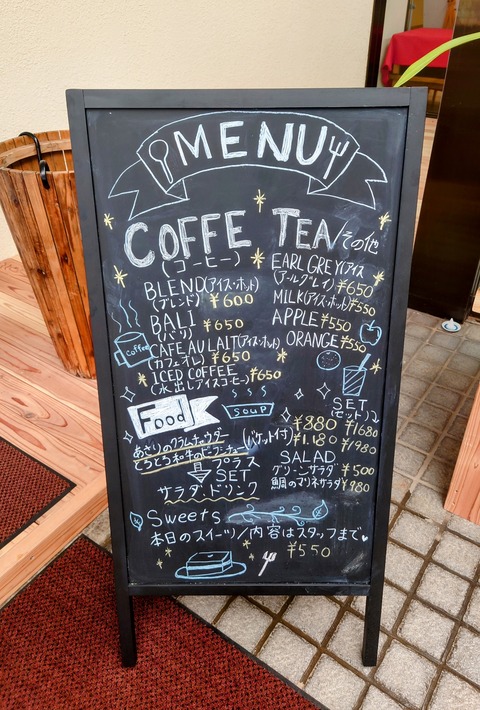 MENU
COFFE
(コーヒー)
BLEND(アイス・ホット)
(ブレンド) ¥600
BALI
(バリ) ¥650
CAFE AU LAIT(アイス・ホット)
(カフェオレ) ¥650
ICED COFFEE
(水出しアイスコーヒー) ¥650
Coffee
TEA/その他
EARL GREY(アイス
(アールグレイ) ¥650
MILK(アイス・ホット) ¥550
APPLE ¥550
ORANGE ¥550
Food
SOUP
SET
(セット)
あさりのクラムチャウダー ¥880 ¥1680
とろとろ和牛のビーフシチュー (バケット付) ¥1.180 ¥1980
プラス
SET
サラダ・ドリンク
SALAD
グリーンサラダ ¥500
鯛のマリネサラダ ¥980
Sweets
本日のスイーツ/内容はスタッフまで
¥550